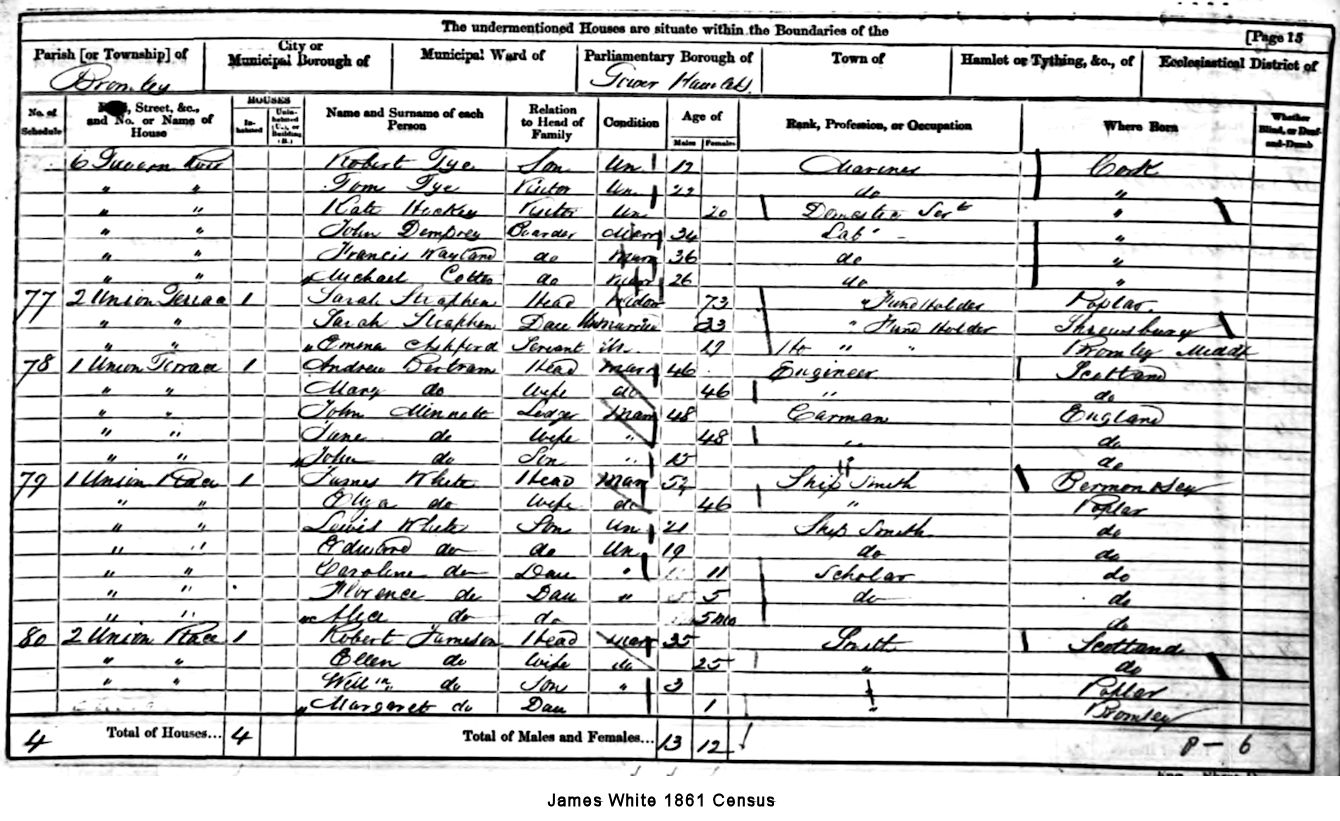 The undermentioned Houses are situate within the Boundaries of the
[Page 15
Parish [or Township] of City or Municipal Borough of Municipal Ward of Parliamentary Borough of Town of Hamlet or Tything, &c., of Ecclesiastical District of
Bromley Tower Hamlets
No. of Schedule Street, &c., and No. or Name of House HOUSES Inhabited Uninhabited (U.), or Building (B.) Name and Surname of each Person Relation to Head of Family Condition Age of Males Females Rank, Profession, or Occupation Where Born Whether Blind, or Deaf-and-Dumb
6 Row Robert Tye Son Un 17 Mariner Cork
" " Tom Tye Visitor Un 22 do "
" " Kate Hickey Visitor Un 20 Domestic Servt "
" " John Dempsey Boarder Marr 34 Labr "
" " Francis Wayland do Marr 36 do "
" " Michael do Marr 26 do "
77 2 Union Terrace 1 Sarah Straphen Head Widow 73 Fund Holder Poplar
" " Sarah Straphen Dau Unmarried 33 " Fund Holder Shrewsbury
" " Emma Ashford Servant Un 19 Ho " " Bromley Middx
78 1 Union Terrace 1 Andrew Bertram Head Marr 46 Engineer Scotland
" " Mary do Wife do 46 " do
" " John Minnett Lodger Marr 48 Carman England
" " Jane do Wife " 48 " do
" " John do Son " 15 " do
79 1 Union Place 1 James White Head Marr 52 Ship Smith Bermondsey
" " Eliza do Wife do 46 " Poplar
" " Lewis White Son Un 21 Ship Smith do
" " Edward do do Un 19 do do
" " Caroline do Dau " 11 Scholar do
" " Florence do Dau " 5 do do
" " Alice do do 5 mo do
80 2 Union Place 1 Robert Jameson Head Marr 35 Smith Scotland
" " Ellen do Wife do 25 " do
" " Willm do Son " 3 " Poplar
" Margaret do Dau 1 " Bromley
4 Total of Houses... 4 Total of Males and Females... 13 12 8 - 6
James White 1861 Census